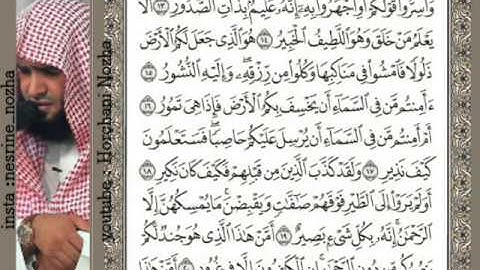 وَأَسِرُّوا۟ قَوْلَكُمْ أَوِ ٱجْهَرُوا۟ بِهِۦٓ إِنَّهُۥ عَلِيمٌۢ بِذَاتِ ٱلصُّدُورِ ١٣ أَلَا
يَعْلَمُ مَنْ خَلَقَ وَهُوَ ٱللَّطِيفُ ٱلْخَبِيرُ ١٤ هُوَ ٱلَّذِى جَعَلَ لَكُمُ ٱلْأَرْضَ
ذَلُولًا فَٱمْشُوا۟ فِى مَنَاكِبِهَا وَكُلُوا۟ مِن رِّزْقِهِۦ وَإِلَيْهِ ٱلنُّشُورُ ١٥
ءَأَمِنتُم مَّن فِى ٱلسَّمَآءِ أَن يَخْسِفَ بِكُمُ ٱلْأَرْضَ فَإِذَا هِىَ تَمُورُ ١٦
أَمْ أَمِنتُم مَّن فِى ٱلسَّمَآءِ أَن يُرْسِلَ عَلَيْكُمْ حَاصِبًا فَسَتَعْلَمُونَ
كَيْفَ نَذِيرِ ١٧ وَلَقَدْ كَذَّبَ ٱلَّذِينَ مِن قَبْلِهِمْ فَكَيْفَ كَانَ نَكِيرِ ١٨
أَوَلَمْ يَرَوْا۟ إِلَى ٱلطَّيْرِ فَوْقَهُمْ صَٰٓفَّٰتٍ وَيَقْبِضْنَ مَا يُمْسِكُهُنَّ إِلَّا
ٱلرَّحْمَٰنُ إِنَّهُۥ بِكُلِّ شَىْءٍۭ بَصِيرٌ ١٩ أَمَّنْ هَٰذَا ٱلَّذِى هُوَ جُندٌ لَّكُمْ
يَنصُرُكُم مِّن دُونِ ٱلرَّحْمَٰنِ إِنِ ٱلْكَٰفِرُونَ إِلَّا فِى غُرُورٍ ٢٠
insta :nesrine_nozha
youtube : Horchani Nozha